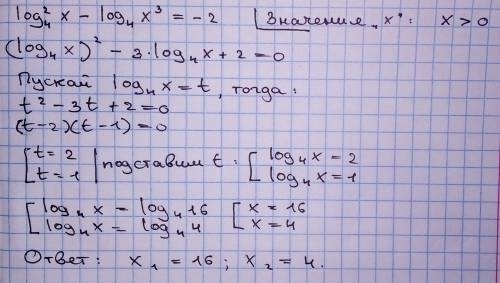 log₄²x - log₄x³ = -2 Значения „x": x > 0
(log₄x)² - 3·log₄x + 2 = 0
Пускай log₄x = t, тогда:
t² - 3t + 2 = 0
(t-2)(t-1) = 0
[t = 2 | подставим t: [log₄x = 2
[t = 1 | [log₄x = 1
[log₄x = log₄16 [x = 16
[log₄x = log₄4 [x = 4
Ответ: x₁ = 16; x₂ = 4.